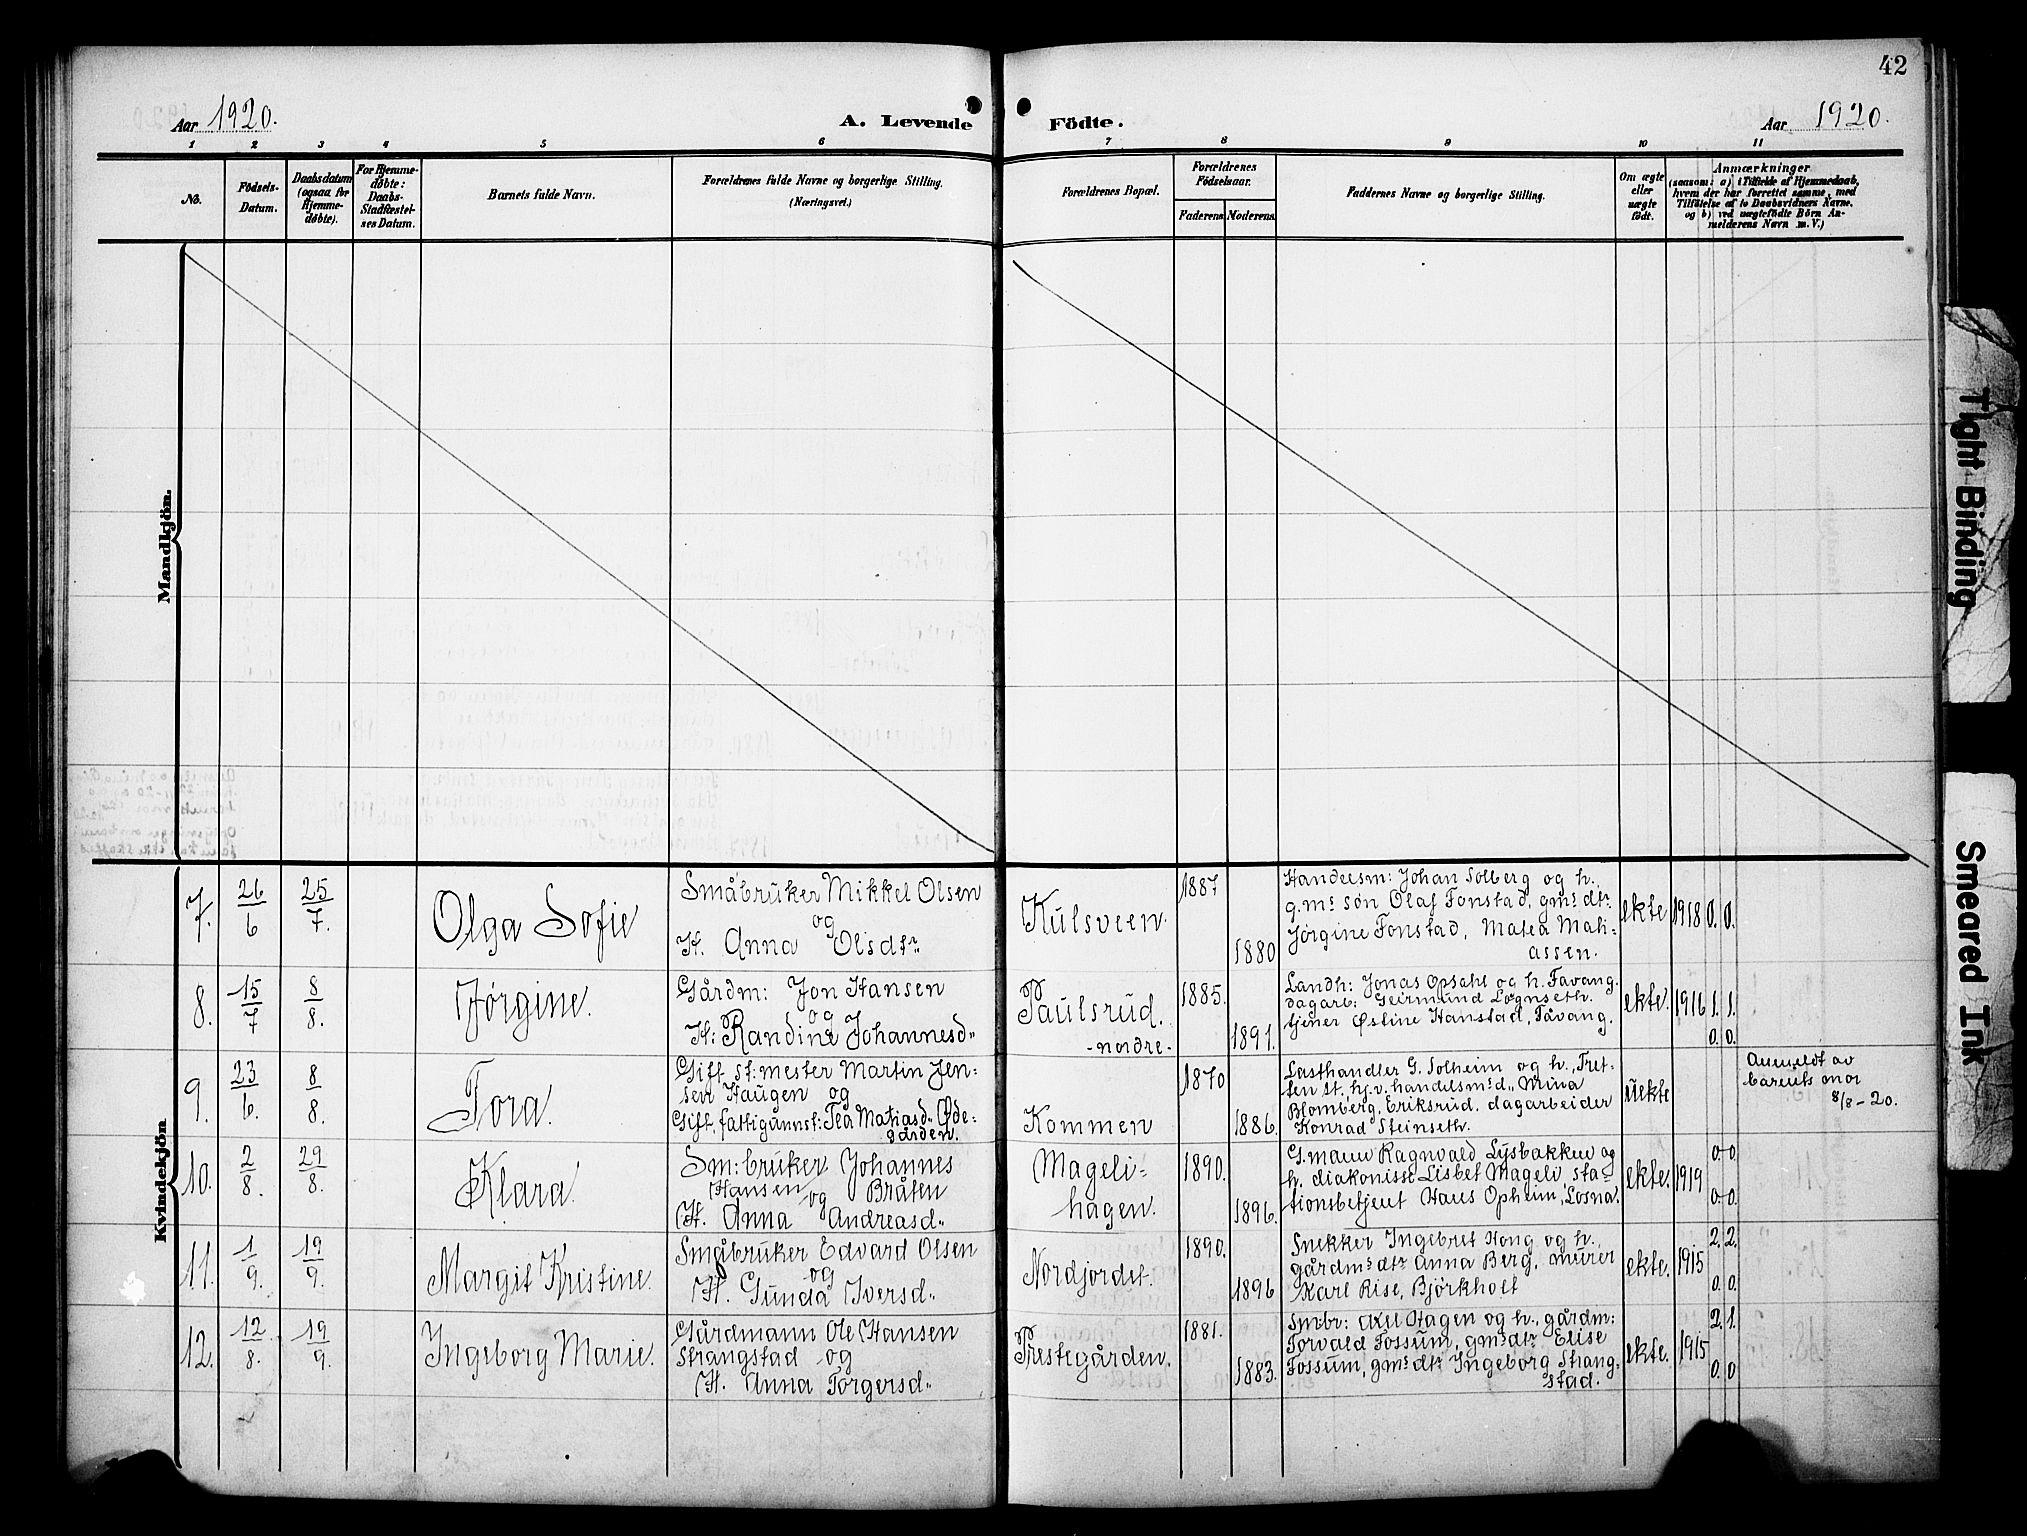 42
Aar 1920.
A. Levende Födte.
Aar 1920.
1 2 3 4 5 6 7 8 9 10 11
No.
Födsels-
Datum.
Daabsdatum
(ogsaa for
Hjemme-
døbte).
For Hjemme-
døbte:
Daabs-
Stadfæstel-
ses Datum.
Barnets fulde Navn.
Forældrenes fulde Navne og borgerlige Stilling.
(Næringsvei.)
Forældrenes Bopæl.
Forældrenes
Födselsaar.
Faderens Moderens
Faddernes Navne og borgerlige Stilling.
Om ægte
eller
uægte
födt.
Anmærkninger
(saasom: a) i Tilfælde af Hjemmedaab,
hvem der har forrettet samme, med
Tilföielse af to Daabsvidners Navne,
og b) ved uægtefödte Börn An-
melderens Navn m. V.)
Mandkjön.
Kvindekjön
7. 26/6 25/7.
Olga Sofie
Småbruker Mikkel Olsen
og
H. Anna Olsdtr
Kulsveen.
1887
1880
Handelsm: Johan Solberg og h.,
g.ms sön Olaf Fonstad, gms dtr
Jørgine Fonstad, Matea Mati-
assen.
ekte 1918 0. 0.
8. 15/7 8/8.
Jørgine.
Gårdm: Jon Hansen
og
H: Randine Johannesd"
Paulsrud.
-nordre-
1885.
1891.
Landh: Jonas Opsahl og h. Favang.
dagarb: Geirmund Løgnseth.
tjener Østine Hanstad, Fåvang.
ekte. 1916 1. 1.
0. 0.
9. 23/6. 8/8.
Tora.
Gift st:mester Martin Jen-
sen Haugen og
Gift, fattigunnst: Tea Matiasd" Øde-
gården.
Kommen
1870
1886.
Lasthandler G. Solheim og h., Tret-
ten st. hj.v. handelsmsd" Mina
Blomberg, Eriksrud. dagarbeider
Konrad Steinseth.
uekte
Anmeldt av
barnets mor
8/8-20.
10. 2/8. 29/8.
Klara.
Sm:bruker Johannes
Hansen og Bråten
H. Anna Andreasd"
Mageli-
hagen.
1890.
1896.
G.mann Ragnvald Lysbakken og
h. diakonisse Lisbet Mageli, sta-
tionsbetjent Hans Opheim, Losna.
ekte. 1919 0. 0.
0. 0.
11. 1/9. 19/9.
Margit Kristine.
Småbruker Edvard Olsen
og
H. Gunda Iversd"
Nordjordet.
1890.
1896
Snekker Ingebret Hong og h.,
gårdms dtr Anna Berg, murer
Karl Rise, Björkholt
ekte. 1915 2. 2.
0. 0
12. 12/8. 19/9.
Ingeborg Marie.
Gårdmann Ole Hansen
Strangstad og
H. Anna Torgersd"
Prestegården.
1881.
1883.
Smbr: Axel Hagen og h., gårdm:
Torvald Fossum, gmsdtr Elise
Fossum, gmsdtr Ingeborg Strang-
stad.
ekte. 1915 2. 1.
0. 0
Tight Binding
Smeared Ink